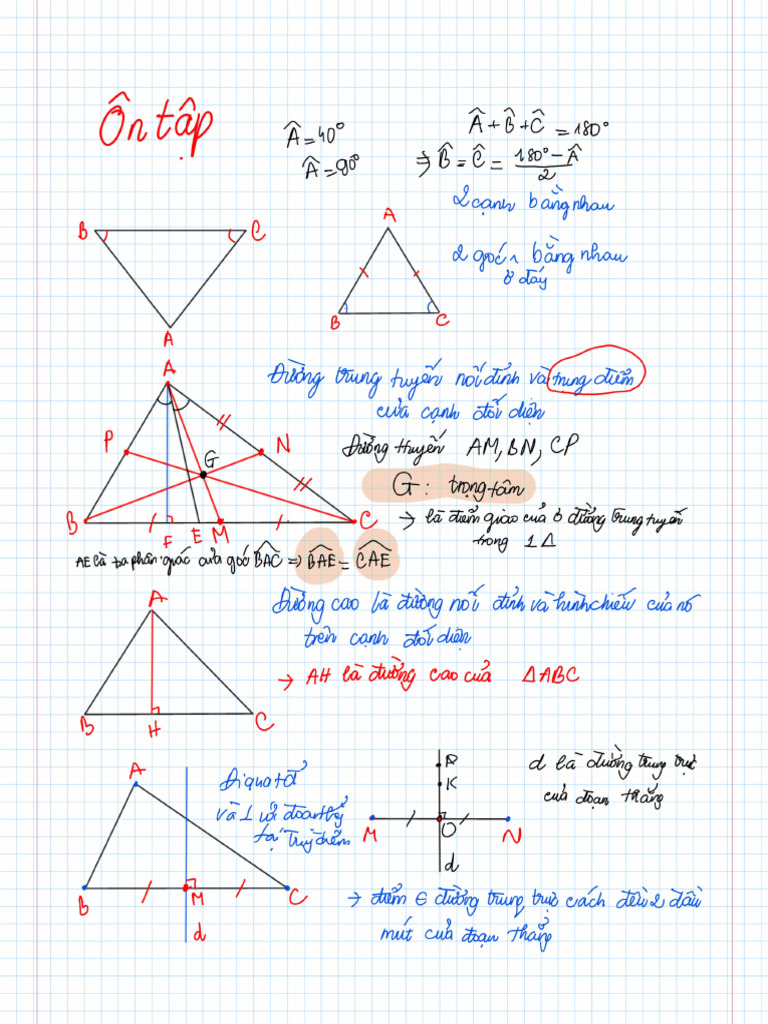 Ôn tập
Â = 40°
Â = 90°
Â + B̂ + Ĉ = 180°
⇒ B̂ = Ĉ = (180° - Â)/2
2 cạnh bằng nhau
2 góc ^ bằng nhau
ở đáy
B C
A
A
B C
A
P N
G
B F E M C
Đường trung tuyến nối đỉnh và trung điểm
của cạnh đối diện
Đường thuyến AM, BN, CP
G: trọng tâm
→ là điểm giao của 3 đường trung tuyến
trong 1 Δ
AE là tia phân giác của góc BAC ⇒ BAE = CAE
A
B H C
Đường cao là đường nối đỉnh và hình chiếu của nó
trên cạnh đối diện
→ AH là đường cao của ΔABC
A
B M C
d
Đi qua
và ⊥ với đoạn
tại
K
M O N
d
d là đường trung trực
của đoạn thẳng
→ điểm ∈ đường trung trực cách đều 2 đầu
mút của đoạn thẳng